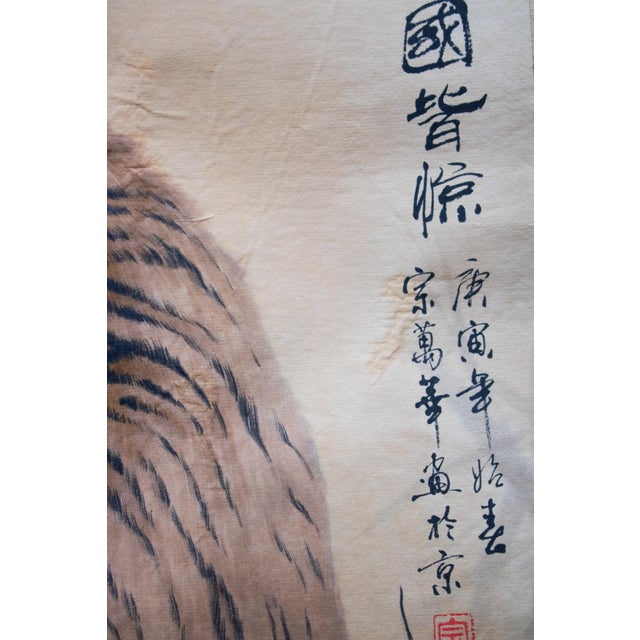 國皆惊
庚寅年始春
宗萬華畫於京
宗